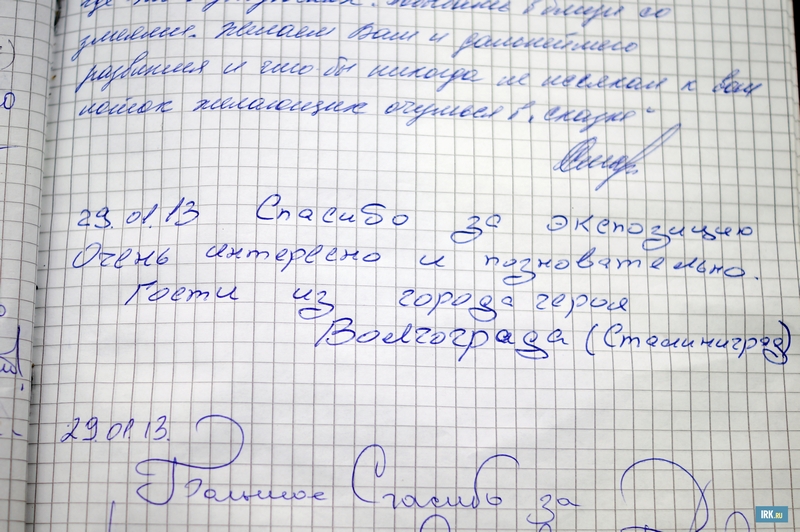 змеями. Желаем Вам и дальнейшего
развития и что бы никогда не иссякал к вам
поток желающих очутится в „сказке“
29.01.13 Спасибо за экспозицию
Очень интересно и позновательно.
Гости из города героя
Волгограда (Сталининград)
29.01.13.
Большое Спасибо за
IRK.RU